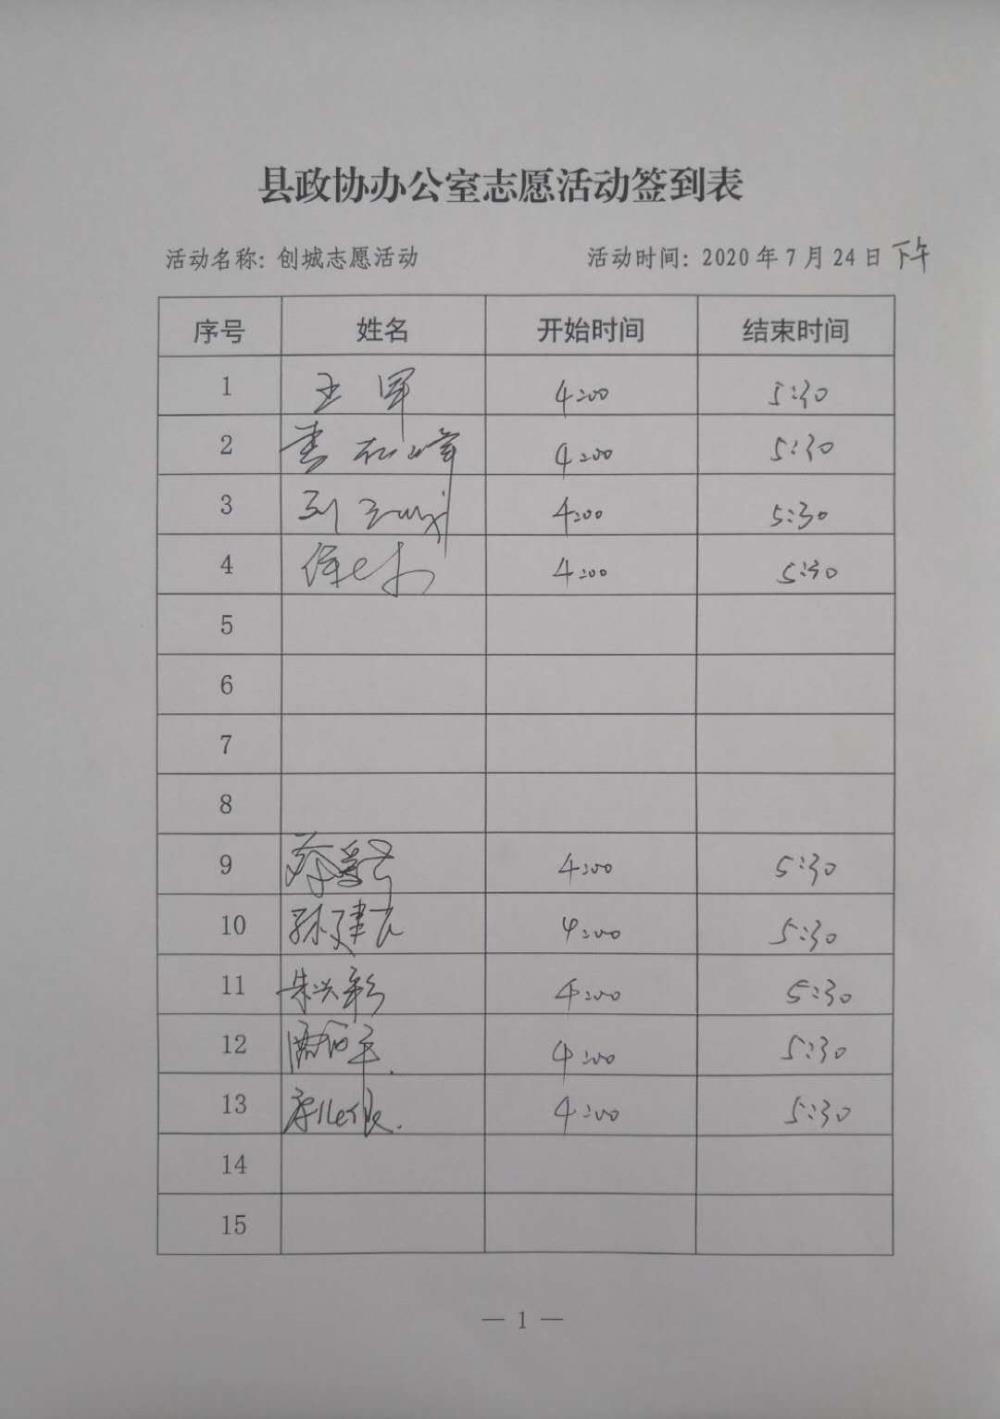 县政协办公室志愿活动签到表
活动名称：创城志愿活动 活动时间：2020年7月24日下午
序号 姓名 开始时间 结束时间
1 王军 4:00 5:30
2 4:00 5:30
3 4:00 5:30
4 4:00 5:30
5
6
7
8
9 4:00 5:30
10 孙建 4:00 5:30
11 朱兴彩 4:00 5:30
12 4:00 5:30
13 4:00 5:30
14
15
— 1 —